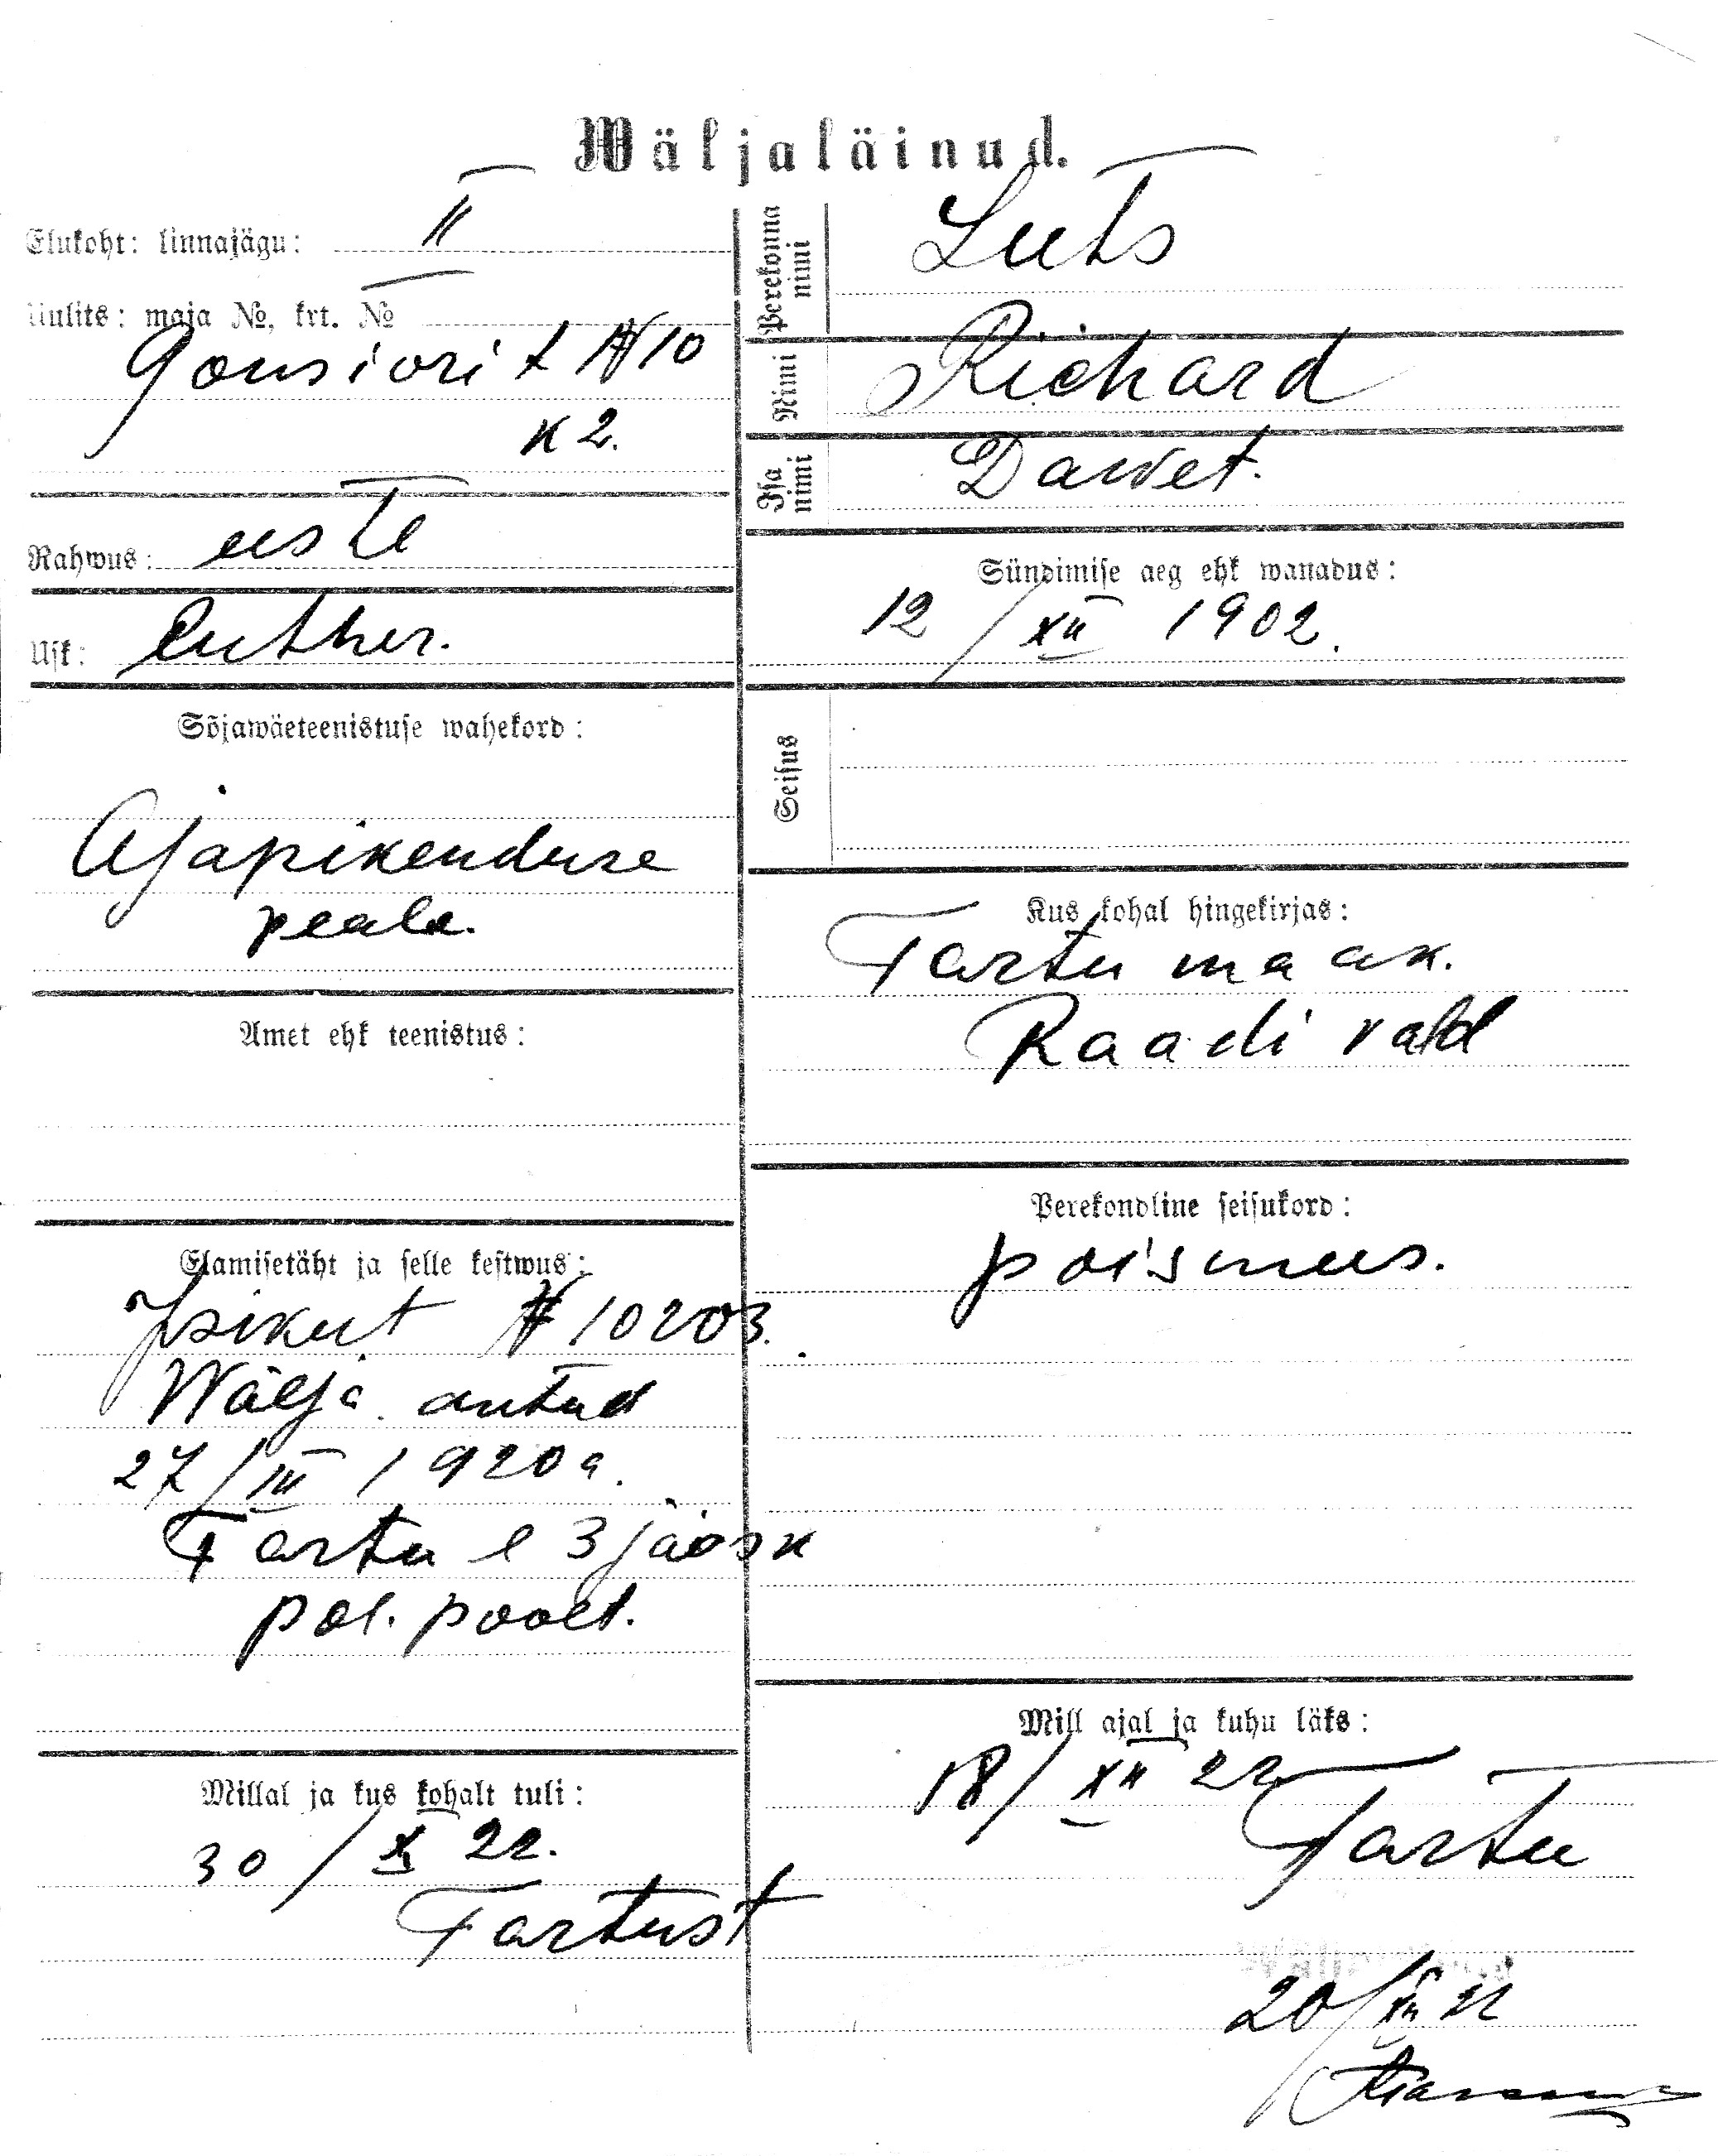 Wäljaläinud.
Elukoht: linnajägu: II
Uulits: maja №, krt. №
Gonsiori t № 10
k 2.
Rahwus: eesti
Usk: Luther.
Sõjawäeteenistuse wahekord:
Ajapikenduse
peale.
Amet ehk teenistus:
Elamisetäht ja selle kestwus:
Isikut № 10203.
Wälja antud
27/III 1920 a.
Tartu l 3 jaosk
pol. poolt.
Millal ja kus kohalt tuli:
30/XI 22.
Tartust
Perekonna nimi Luts
Nimi Richard
Isa nimi Dawet.
Sündimise aeg ehk wanadus:
12/XII 1902.
Seisus
Kus kohal hingekirjas:
Tartu maak.
Raadi vald
Perekondline seisukord:
poismees.
Mill ajal ja kuhu läks:
18/XII 22
Tartu
20/XII 22